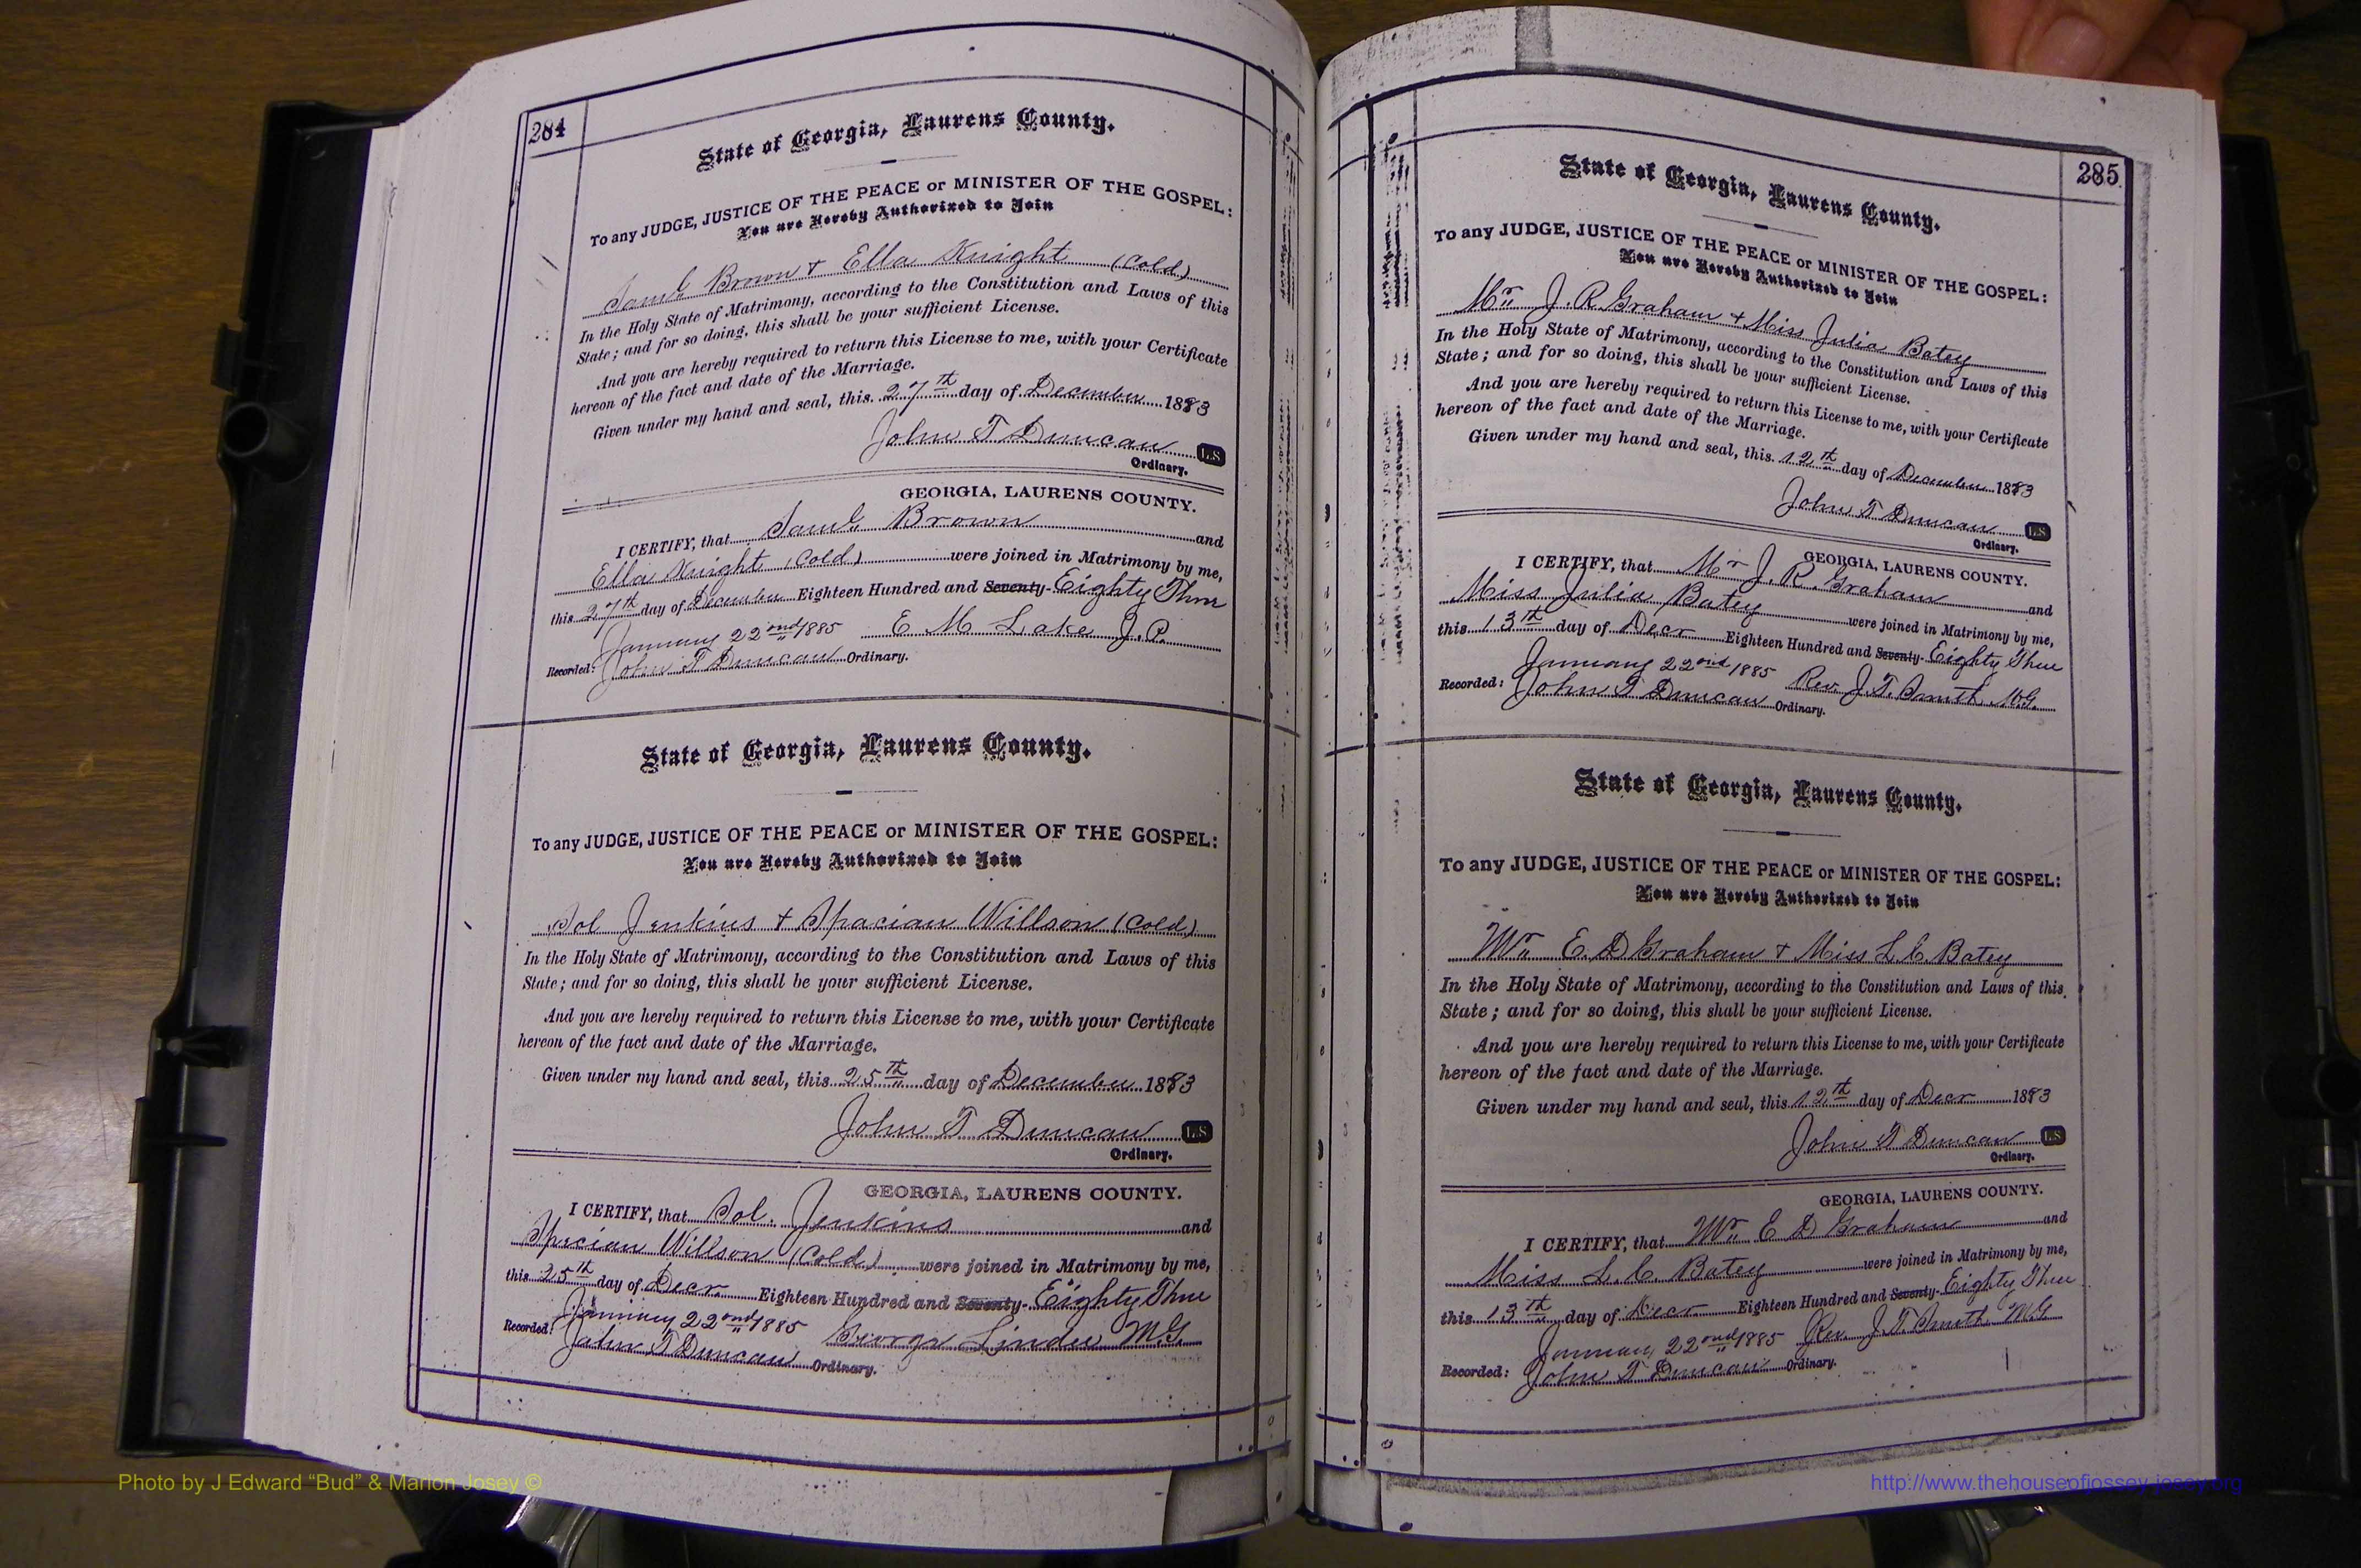 284
State of Georgia, Laurens County.
To any JUDGE, JUSTICE OF THE PEACE or MINISTER OF THE GOSPEL:
You are Hereby Authorized to Join
Saml Brown + Ella Knight (Cold)
In the Holy State of Matrimony, according to the Constitution and Laws of this
State; and for so doing, this shall be your sufficient License.
And you are hereby required to return this License to me, with your Certificate
hereon of the fact and date of the Marriage.
Given under my hand and seal, this 27th day of December 1883
John T Duncan L.S
Ordinary.
GEORGIA, LAURENS COUNTY.
I CERTIFY, that Saml Brown and
Ella Knight (Cold) were joined in Matrimony by me,
this 27th day of December Eighteen Hundred and Seventy- Eighty Three
January 22nd 1885 E M Lake J.P.
Recorded: John T Duncan Ordinary.
State of Georgia, Laurens County.
To any JUDGE, JUSTICE OF THE PEACE or MINISTER OF THE GOSPEL:
You are Hereby Authorized to Join
Sol Jenkins + Spacian Willson (Cold)
In the Holy State of Matrimony, according to the Constitution and Laws of this
State; and for so doing, this shall be your sufficient License.
And you are hereby required to return this License to me, with your Certificate
hereon of the fact and date of the Marriage.
Given under my hand and seal, this 25th day of December 1883
John T Duncan L.S
Ordinary.
GEORGIA, LAURENS COUNTY.
I CERTIFY, that Sol. Jenkins and
Willson (Cold) were joined in Matrimony by me,
this 25th day of Decr. Eighteen Hundred and Seventy- Eighty Three
January 22nd 1885 George Linder M.G.
Recorded: John T Duncan Ordinary.
285
State of Georgia, Laurens County.
To any JUDGE, JUSTICE OF THE PEACE or MINISTER OF THE GOSPEL:
You are Hereby Authorized to Join
Mr J. R. Graham + Miss Julia Batey
In the Holy State of Matrimony, according to the Constitution and Laws of this
State; and for so doing, this shall be your sufficient License.
And you are hereby required to return this License to me, with your Certificate
hereon of the fact and date of the Marriage.
Given under my hand and seal, this 12th day of December 1883
John T Duncan L.S
Ordinary.
GEORGIA, LAURENS COUNTY.
I CERTIFY, that Mr J. R. Graham and
Miss Julia Batey were joined in Matrimony by me,
this 13th day of Decr Eighteen Hundred and Seventy- Eighty Three
January 22nd 1885 Rev. J. T. Smith M.G.
Recorded: John T Duncan Ordinary.
State of Georgia, Laurens County.
To any JUDGE, JUSTICE OF THE PEACE or MINISTER OF THE GOSPEL:
You are Hereby Authorized to Join
Mr E. D Graham + Miss L. C. Batey
In the Holy State of Matrimony, according to the Constitution and Laws of this
State; and for so doing, this shall be your sufficient License.
And you are hereby required to return this License to me, with your Certificate
hereon of the fact and date of the Marriage.
Given under my hand and seal, this 12th day of Decr 1883
John T Duncan L.S
Ordinary.
GEORGIA, LAURENS COUNTY.
I CERTIFY, that Mr E D Graham and
Miss L. C. Batey were joined in Matrimony by me,
this 13th day of Decr Eighteen Hundred and Seventy- Eighty Three
January 22nd 1885 Rev. J. T. Smith M.G
Recorded: John T Duncan Ordinary.
Photo by J Edward “Bud” & Marion Josey ©
http://www.thehouseofjossey-josey.org